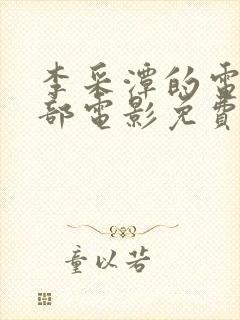 李采潭的電
部電影免費
童以若